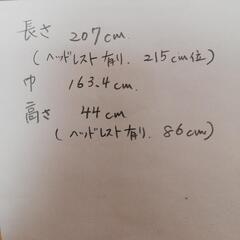 長さ 207cm.
(ヘッドレスト有り. 215cm位)
巾 163.4cm.
高さ 44cm.
(ヘッドレスト有り. 86cm)